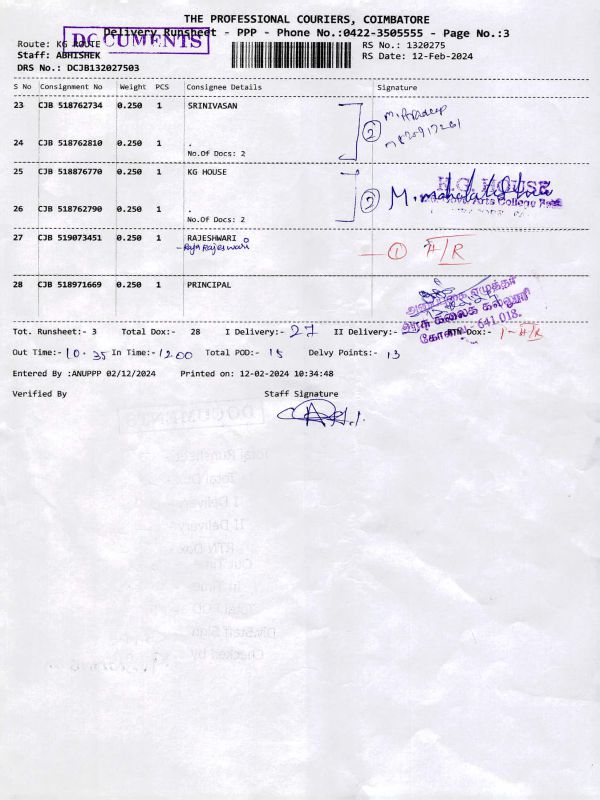 THE PROFESSIONAL COURIERS, COIMBATORE
Delivery Runsheet - PPP - Phone No.:0422-3505555 - Page No.:3
DOCUMENTS
Route: KG ROUTE
RS No.: 1320275
Staff: ABHISHEK
RS Date: 12-Feb-2024
DRS No.: DCJB132027503
S No Consignment No Weight PCS Consignee Details Signature
23 CJB 518762734 0.250 1 SRINIVASAN
24 CJB 518762810 0.250 1 .
No.Of Docs: 2
2
25 CJB 518876770 0.250 1 KG HOUSE
K.G. HOUSE
Arts College Road
26 CJB 518762790 0.250 1 .
No.Of Docs: 2
2
27 CJB 519073451 0.250 1 RAJESHWARI
1 A/R
28 CJB 518971669 0.250 1 PRINCIPAL
அரசு கலைக் கல்லூரி
கோவை - 641 018.
Tot. Runsheet:- 3 Total Dox:- 28 I Delivery:- 27 II Delivery:- RTN Dox:- 1-A/R
Out Time:- 10.35 In Time:- 1200 Total POD:- 15 Delvy Points:- 13
Entered By :ANUPPP 02/12/2024 Printed on: 12-02-2024 10:34:48
Verified By Staff Signature